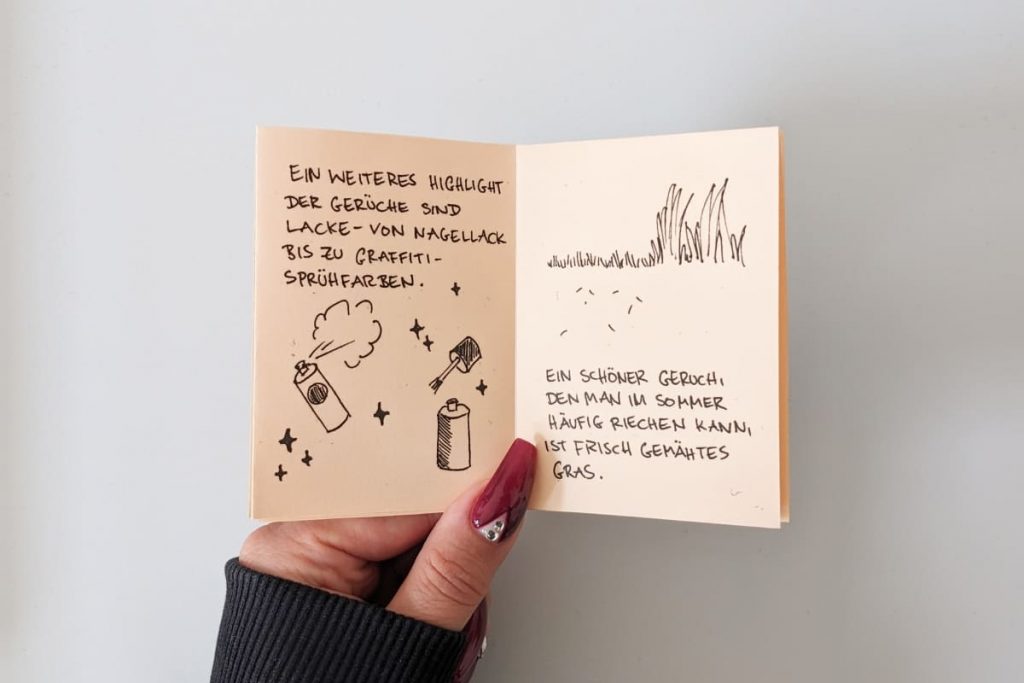 EIN WEITERES HIGHLIGHT
DER GERÜCHE SIND
LACKE - VON NAGELLACK
BIS ZU GRAFFITI-
SPRÜHFARBEN.
EIN SCHÖNER GERUCH,
DEN MAN IM SOMMER
HÄUFIG RIECHEN KANN,
IST FRISCH GEMÄHTES
GRAS.